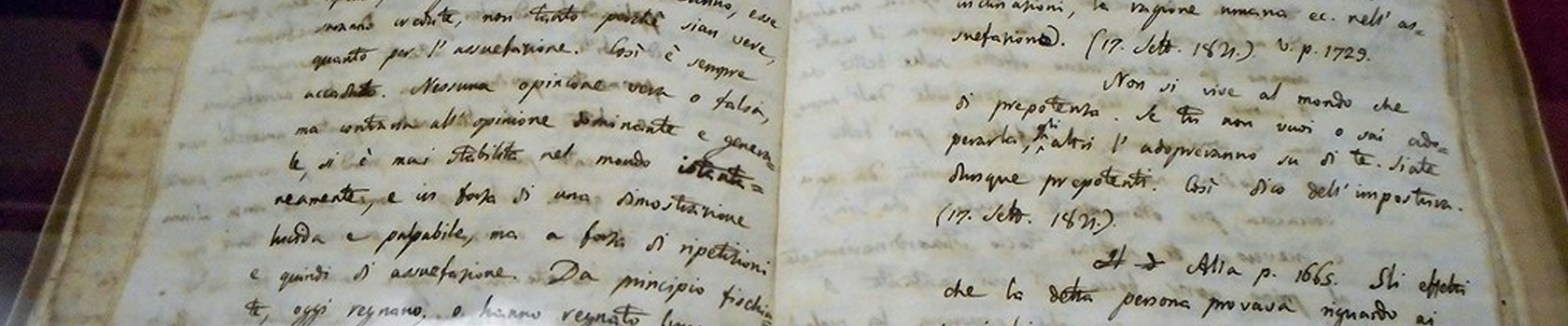 esse
saranno credute, non tanto perchè sian vere,
quanto per l' assuefazione. Così è sempre
accaduto. Nessuna opinione vera o falsa,
ma contraria all' opinione dominante e genera=
le, si è mai stabilita nel mondo istanta=
neamente, e in forza di una dimostrazione
lucida e palpabile, ma a forza di ripetizioni
e quindi di assuefazione. Da principio fischia=
te, oggi regnano, o hanno regnato
inclinazioni, la ragione umana ec. nell' as=
suefazione). (17. Sett. 1821.). V. p. 1729.
Non si vive al mondo che
di prepotenza. Se tu non vuoi o sai ado=
perarla, gli altri l' adopreranno su di te. Siate
dunque prepotenti. Così dico dell' impostura.
(17. Sett. 1821.).
Alla p. 1665. Gli effetti
che la detta persona provava riguardo ai